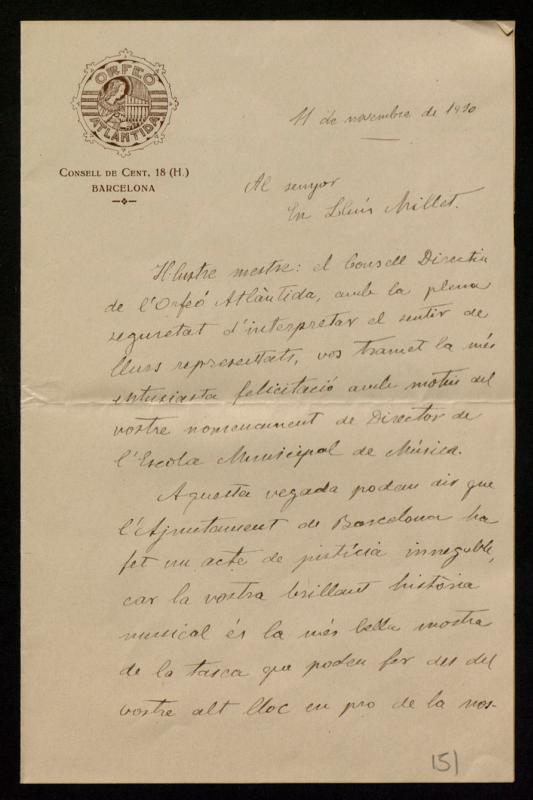 ORFEÓ
ATLÀNTIDA
CONSELL DE CENT, 18 (H.)
BARCELONA
11 de novembre de 1930
Al senyor
En Lluís Millet.
Il·lustre mestre: el Consell Directiu
de l'Orfeó Atlàntida, amb la plena
seguretat d'interpretar el sentir de
llurs representats, vos tramet la més
entusiasta felicitació amb motiu del
vostre nomenament de Director de
l'Escola Municipal de Música.
Aquesta vegada podem dir que
l'Ajuntament de Barcelona ha
fet un acte de justícia innegable,
car la vostra brillant història
musical és la més bella mostra
de la tasca que podeu fer des del
vostre alt lloc en pro de la nos-
151